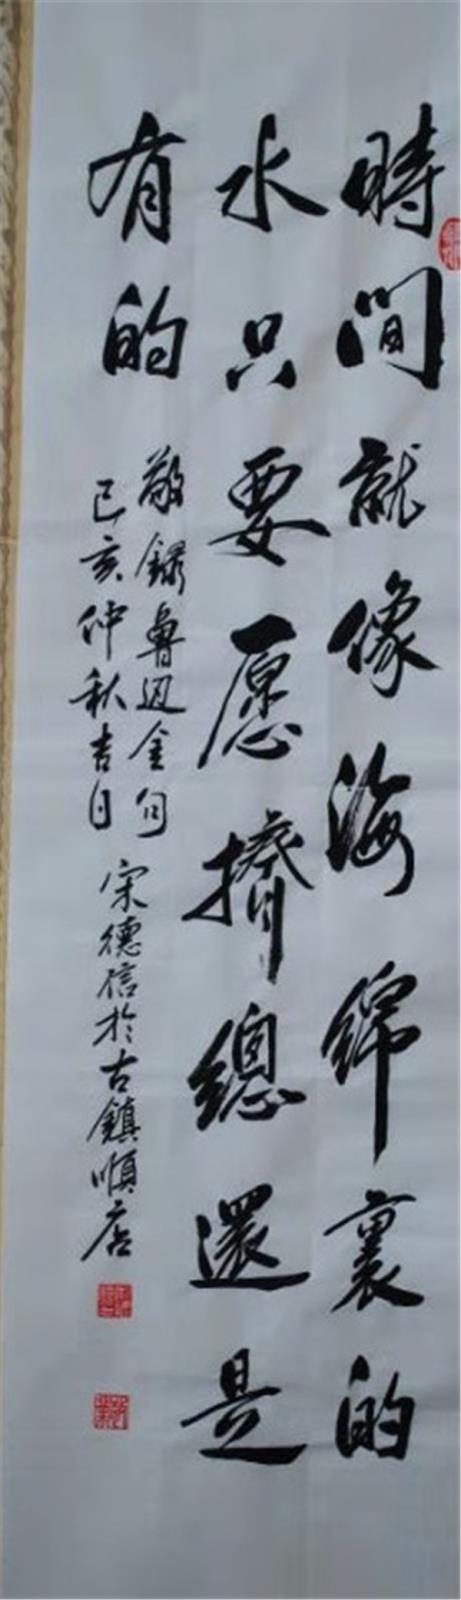 時間就像海綿裏的
水只要愿擠總還是
有的
敬錄魯迅金句
己亥仲秋吉日
宋德信於古鎮順店